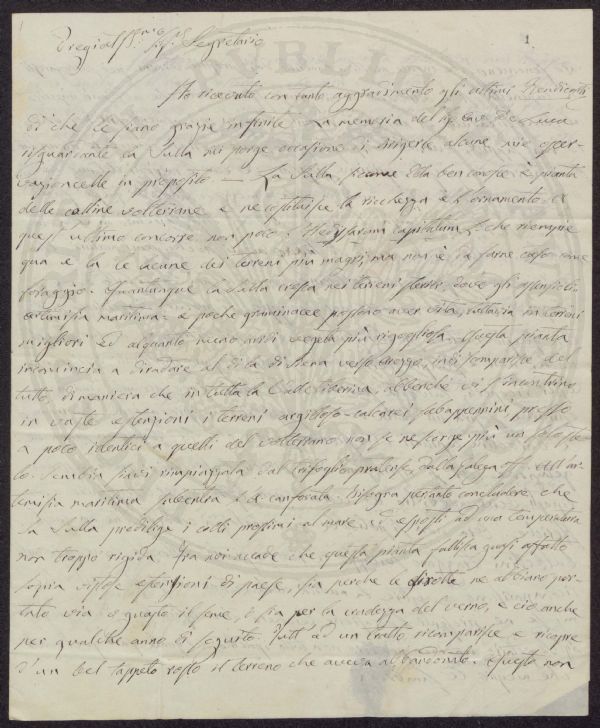 Pregiat.mo Sig.r Segretario
1
Ho ricevuto con tanto aggradimento gli ultimi Rendiconti
di che Le siano grazie infinite. La memoria del Sig. Cav. De Luca
risguardante la Sulla mi porge occasione di dirigerle alcune mie osser-
vazioncelle in proposito — La Sulla siccome Ella ben conosce è pianta
delle colline volterrane e ne costituisce la ricchezza e l'ornamento. A
quest'ultimo concorre non poco l'Hedysarum capitatum che riempie
qua e la le lacune dei terreni più magri; ma non è da farne caso come
foraggio. Quantunque la Sulla cresca nei terreni dove gli
artemisia maritima e poche graminacee possono aver vita, tuttavia in terreni
migliori ed alquanto meno aridi vegeta più rigogliosa. Questa pianta
incomincia a diradare al di là di Siena verso Arezzo, indi scomparisce del
tutto, di maniera che in tutta la Valle tiberina, abbenché vi s'incontrino
in vaste estenzioni i terreni argilloso-calcarei subappennini presso
a poco identici a quelli del volterrano non se ne scorge più un solo ste-
lo. Sembra siavi rimpiazzata dal trifoglio pratense, dalla galega off. All'ar-
temisia maritima subentra l'A. canforata. Bisogna pertanto concludere, che
la Sulla predilige i colli prossimi al mare ed esposti ad una temperatura
non troppo rigida. Tra noi accade che questa pianta fallisca quasi affatto
sopra vistose estensioni di paese, sia perchè le dirotte ne abbiano por-
tato via o guasto il seme, o sia per la crudezza del verno, e ciò anche
per qualche anno di seguito. Tutt'ad un tratto ricomparisce e ricopre
d'un bel tappeto rosso il terreno che aveva abbandonato. Questo non